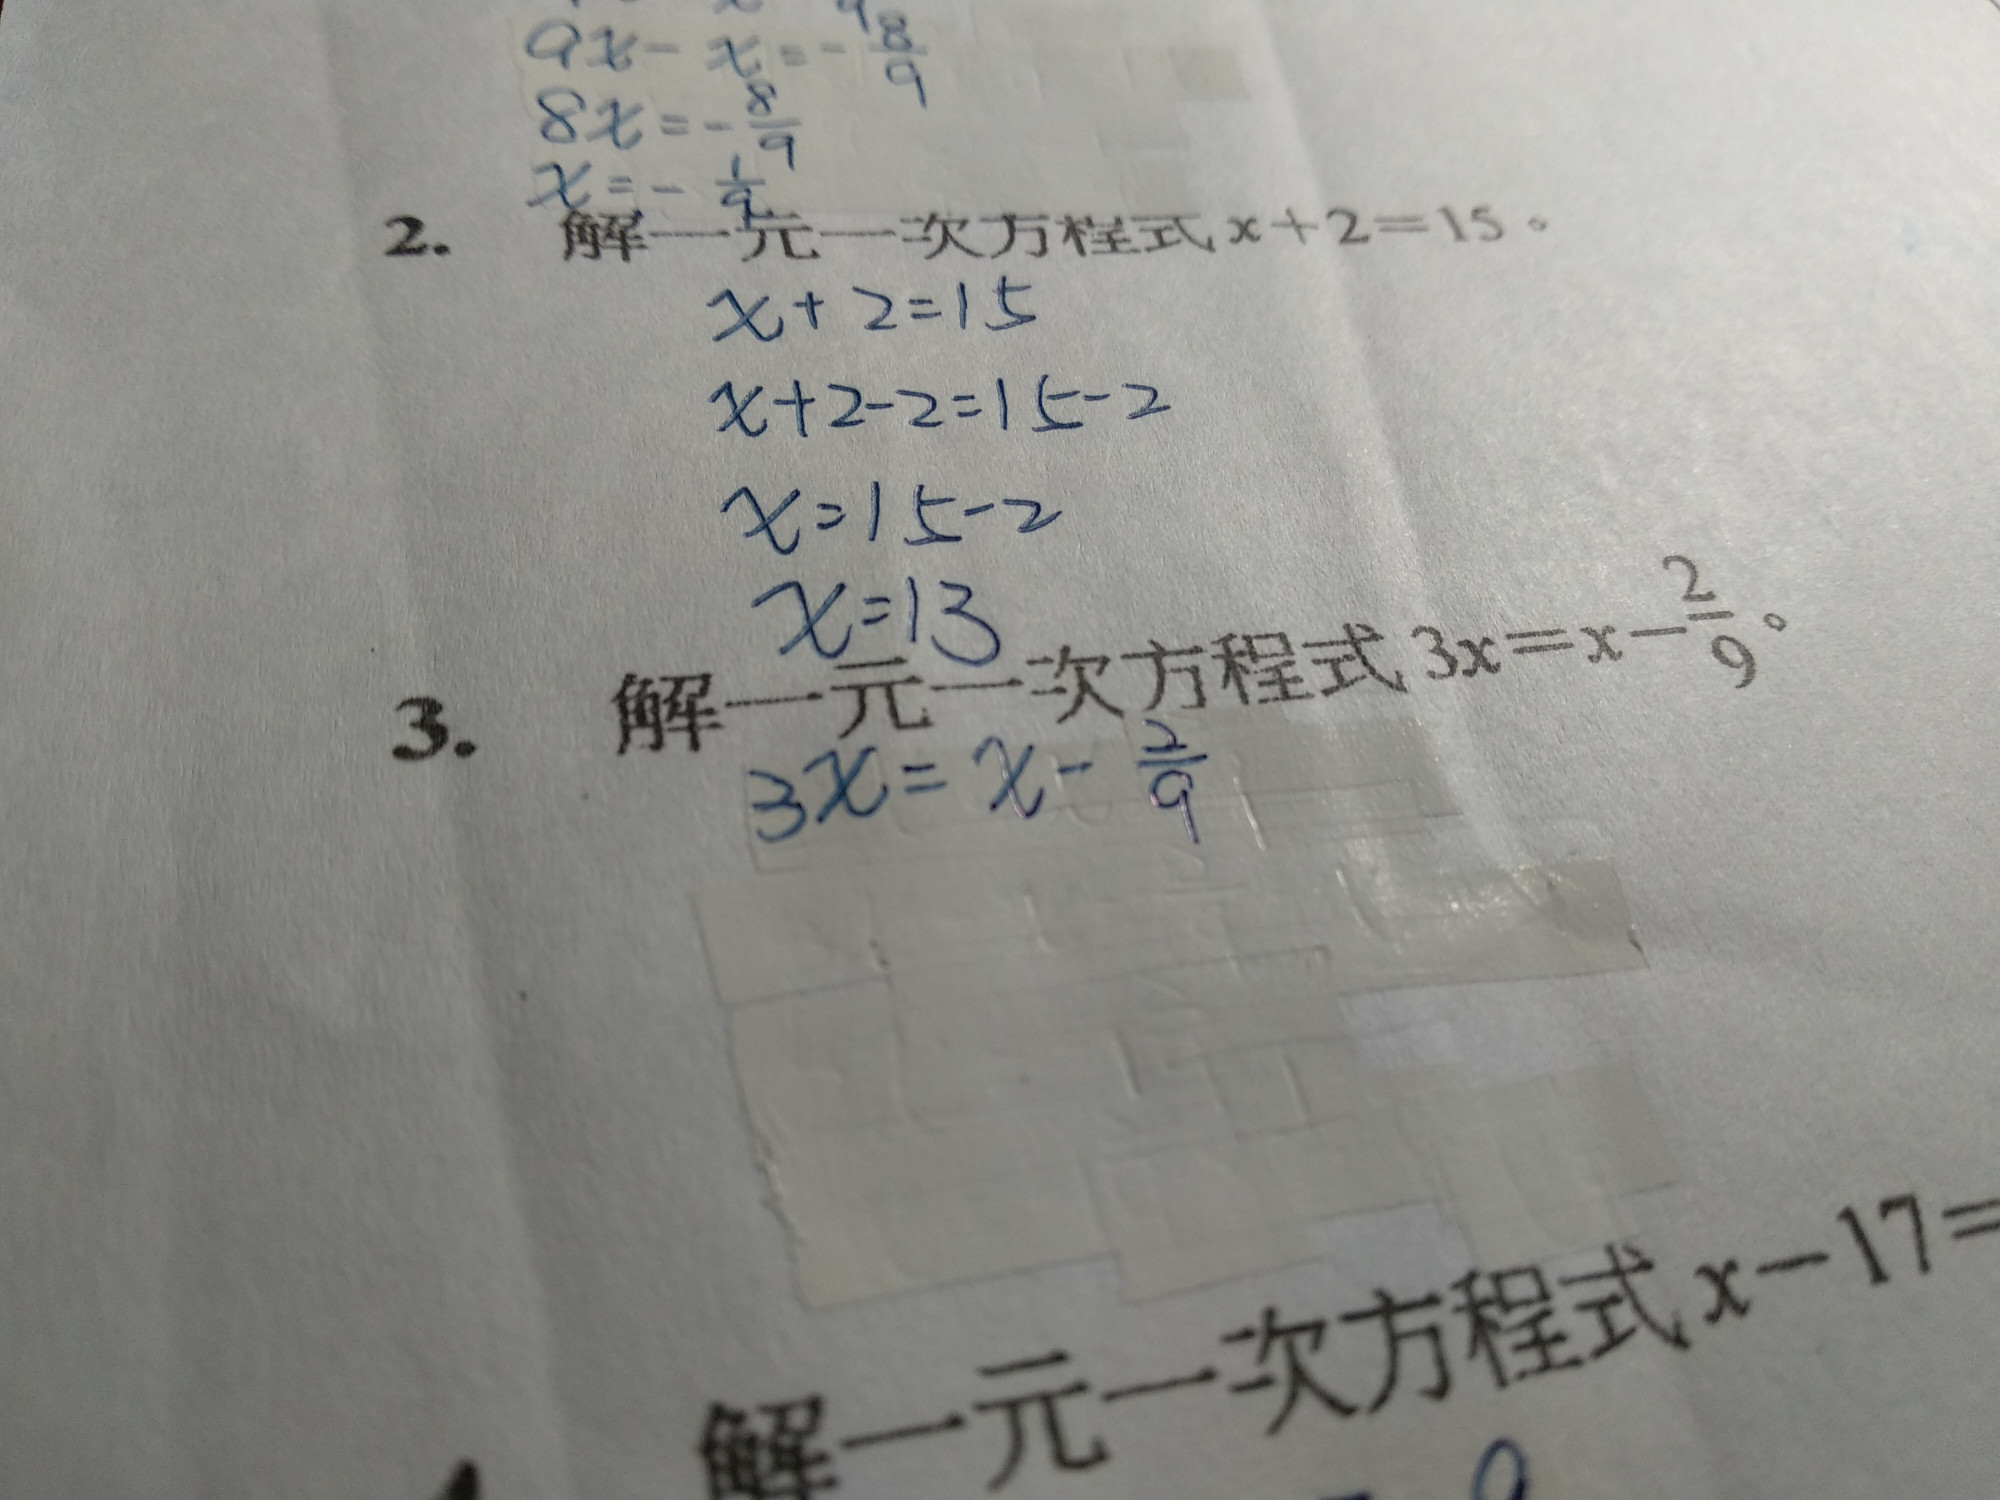 9x - x = - 8/9
8x = - 8/9
x = - 1/9
2. 解一元一次方程式 x+2=15。
x+2=15
x+2-2=15-2
x=15-2
x=13
3. 解一元一次方程式 3x=x-2/9。
3x = x - 2/9
解一元一次方程式 x-17=